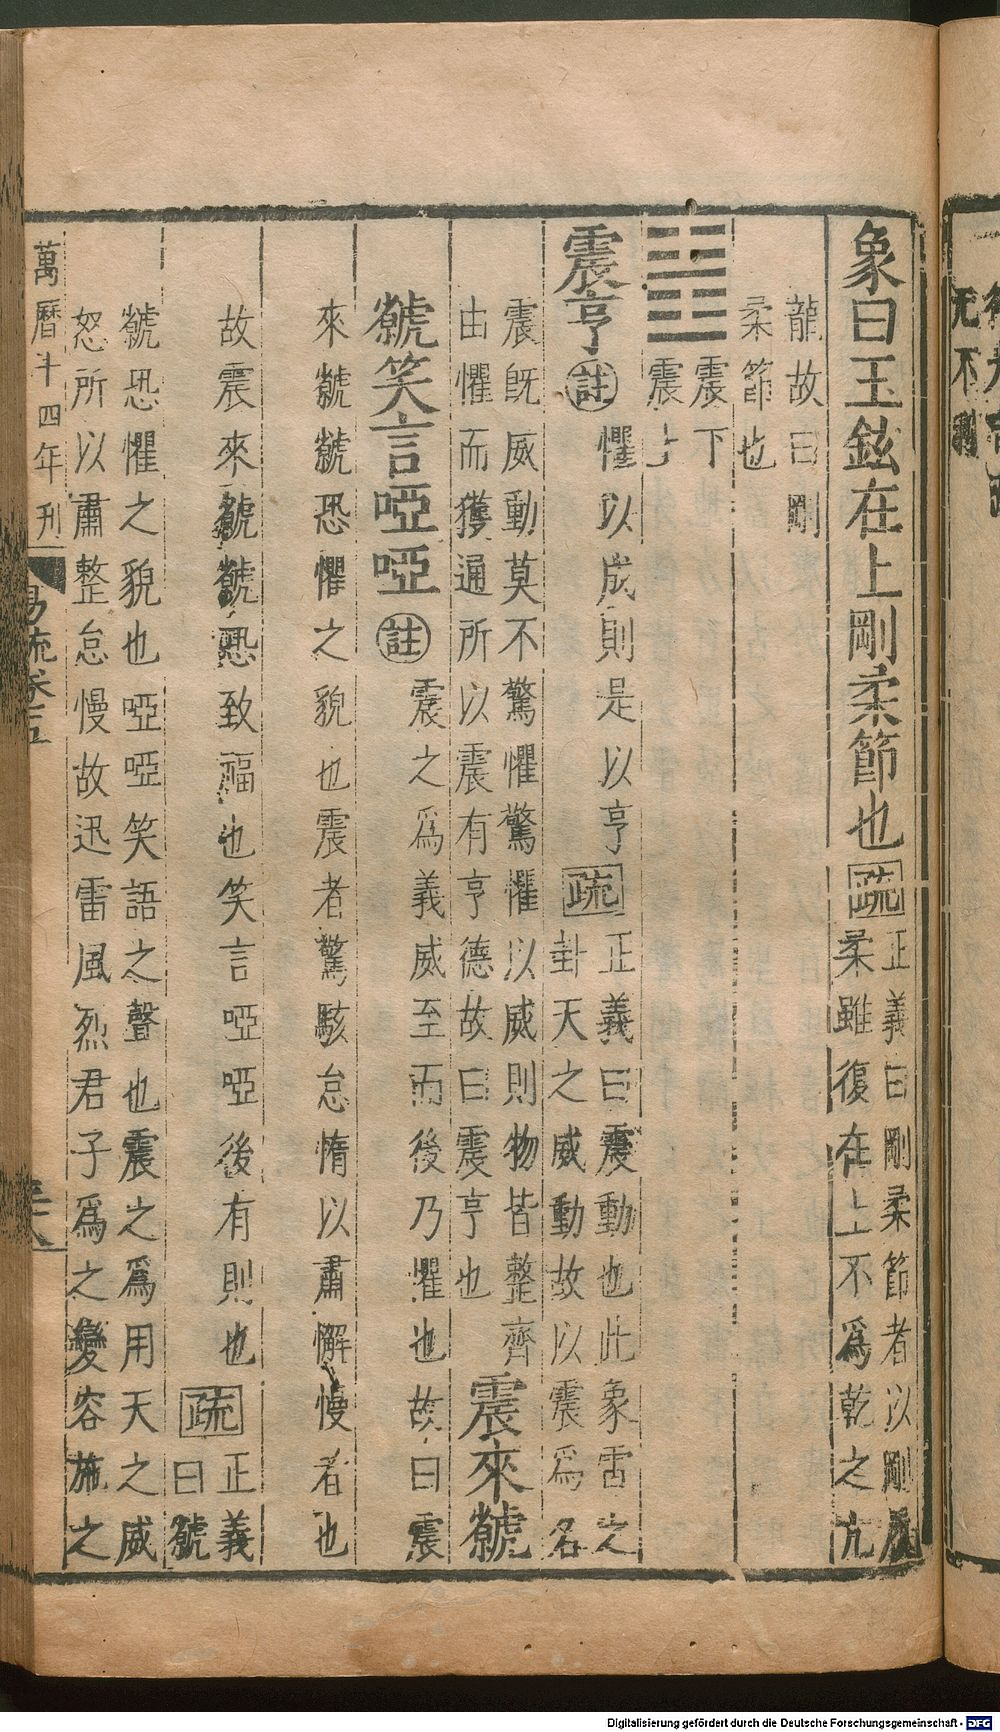 象曰玉鉉在上剛柔節也疏正義曰剛柔節者以剛履
柔雖復在上不爲乾之亢
龍故曰剛
柔節也
震下
震上
震亨註懼以成則是以亨疏正義曰震動也此象雷之
卦天之威動故以震爲名
震旣威動莫不驚懼驚懼以威則物皆整齊
由懼而獲通所以震有亨德故曰震亨也震來虩
虩笑言啞啞註震之爲義威至而後乃懼也故曰震
來虩虩恐懼之貌也震者驚駭怠惰以肅懈慢者也
故震來虩虩恐致福也笑言啞啞後有則也疏正義
曰虩
虩恐懼之貌也啞啞笑語之聲也震之爲用天之威
怒所以肅整怠慢故迅雷風烈君子爲之變容施之
萬曆十四年刊
易疏卷五
无不利
Digitalisierung gefördert durch die Deutsche Forschungsgemeinschaft - DFG